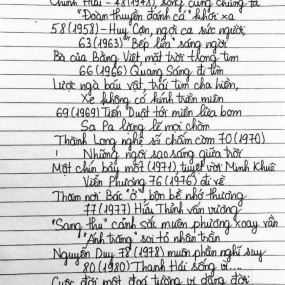 Chính Hữu - 48 (1948), sống cùng chúng ta
"Đoàn thuyền đánh cá" khơi xa
58 (1958) - Huy Cận, ngợi ca sức người
63 (1963) "Bếp lửa" sáng ngời
Bà của Bằng Việt, mặt trời trong tim
66 (1966) Quang Sáng đi tìm
Lược ngà báu vật, trái tim cha hiền,
Xe không có kính triền miên
69 (1969) Tiến Duật tới miền lửa bom
Sa Pa lặng lẽ mọi chòm
Thành Long nghệ sĩ chấm cơm 70 (1970)
Những ngôi sao sáng giữa trời
Một chín bảy một (1971), tuyệt vời Minh Khuê
Viễn Phương 76 (1976) đi về
Thăm nơi Bác "ở", bộn bề nhớ thương
77 (1977) Hữu Thỉnh vấn vương
"Sang thu" cảnh sắc muôn phương xoay vần
"Ánh trăng" soi tỏ nhân trần
Nguyễn Duy 78 (1978) muôn phần nghĩ suy
80 (1980) Thanh Hải sống vì...
Cuộc đời một đoá tường vi dâng đời